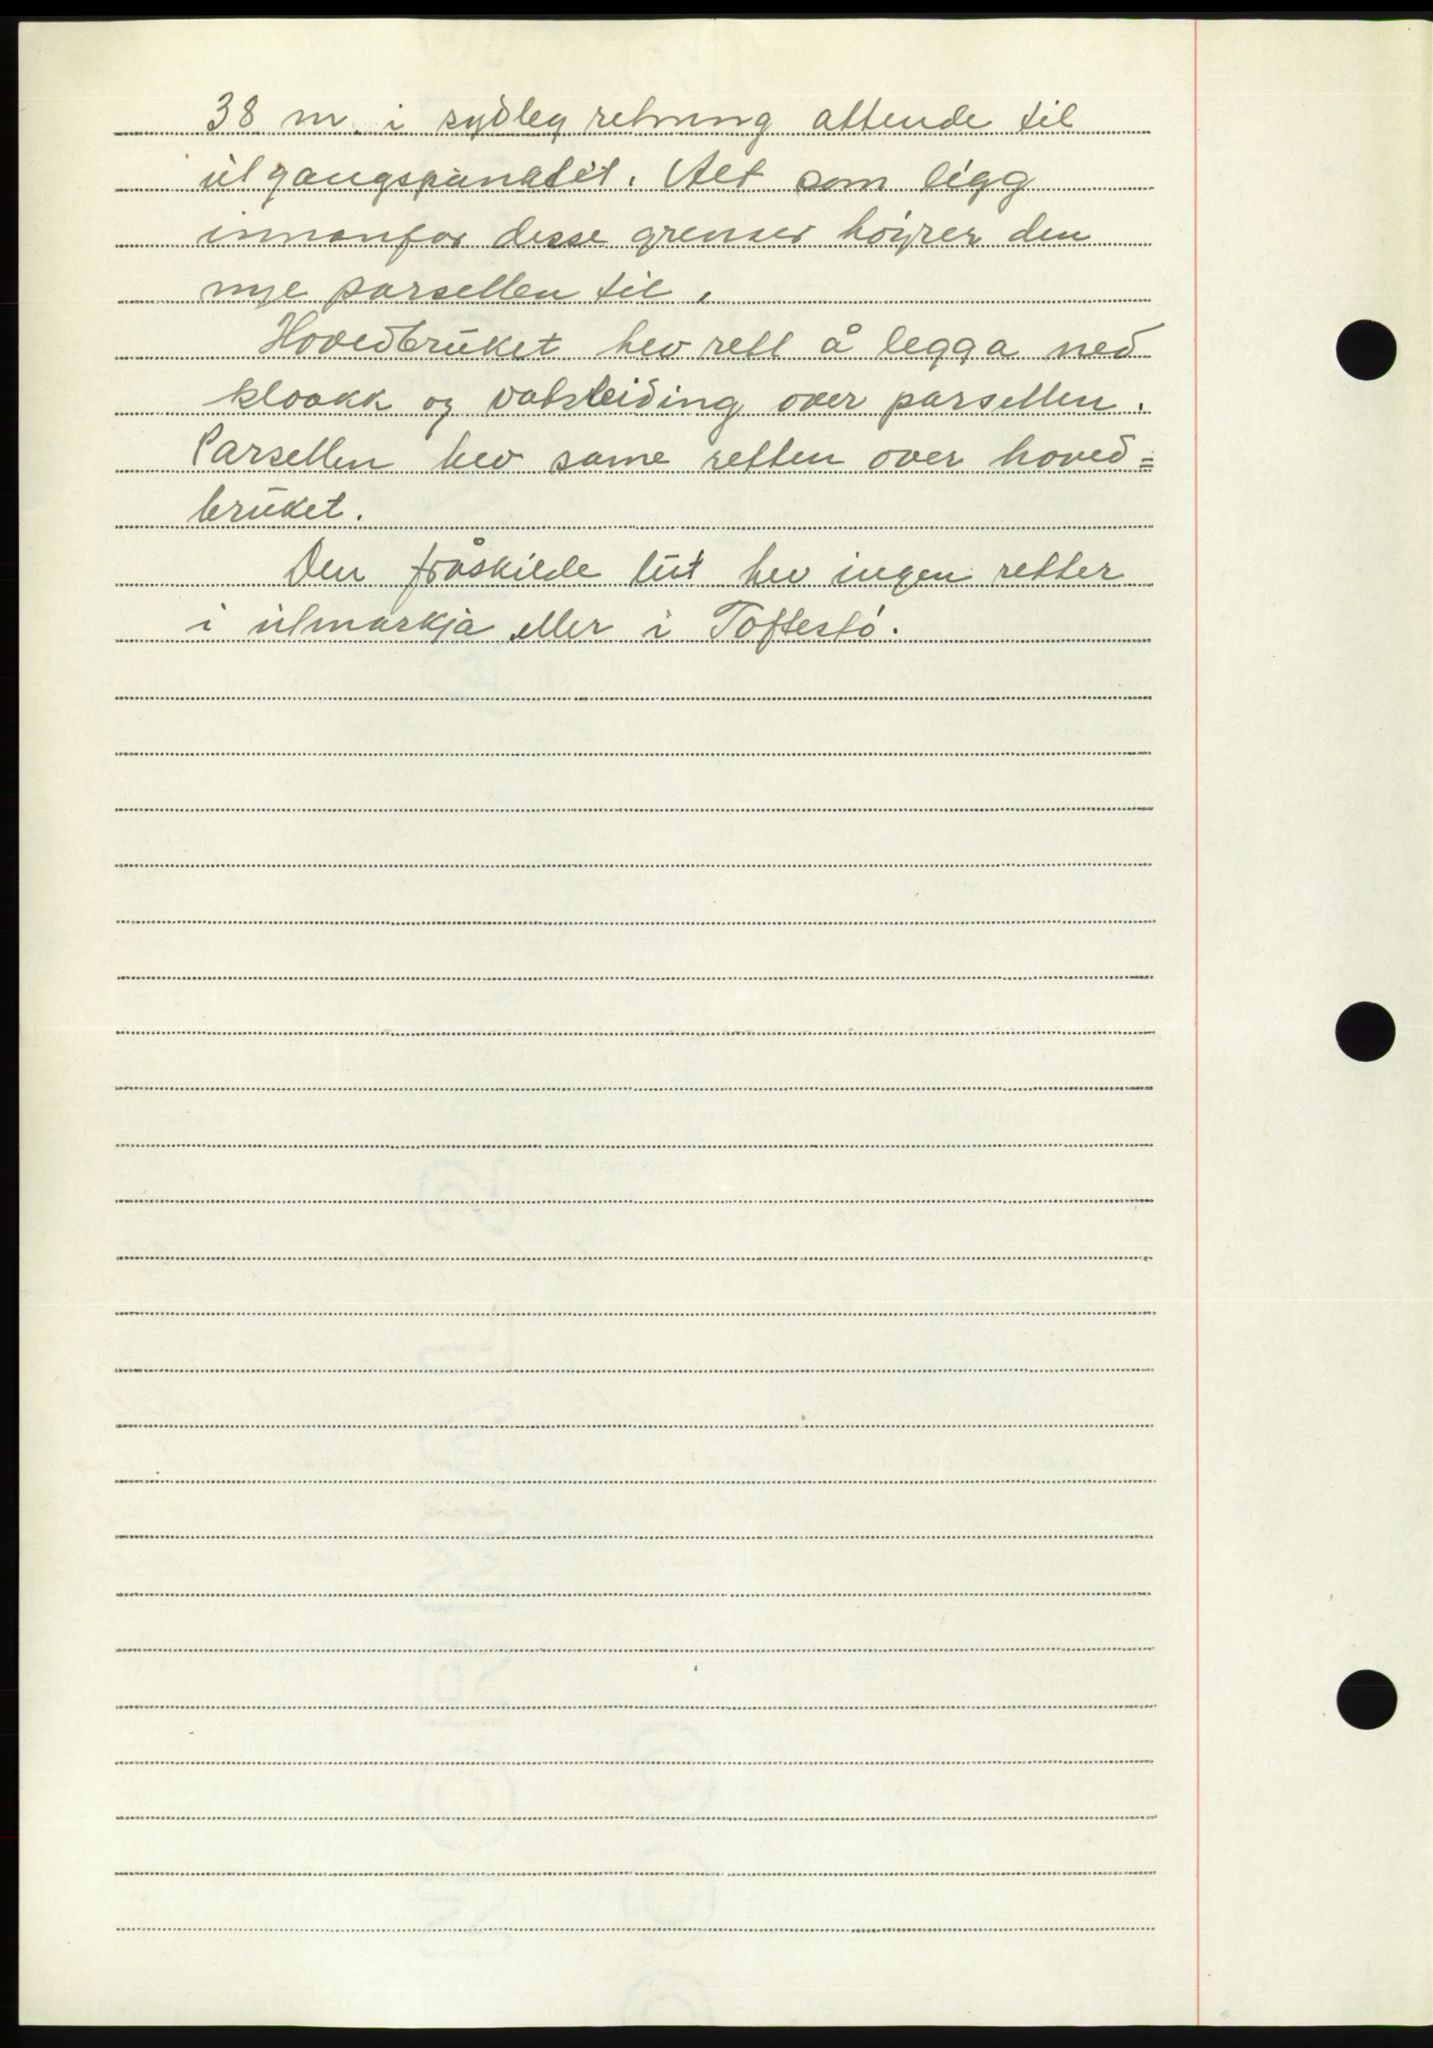 38 m. i sydleg retning attende til
utgangspunktet. Alt som ligg
innanfor desse grenser høyrer den
nye parsellen til.
Hovedbruket hev rett å legga ned
kloakk og vatsleiding over parsellen.
Parsellen hev same retten over hoved=
bruket.
Den fråskilde lut hev ingen retter
i utmarkja eller i Toftestö.